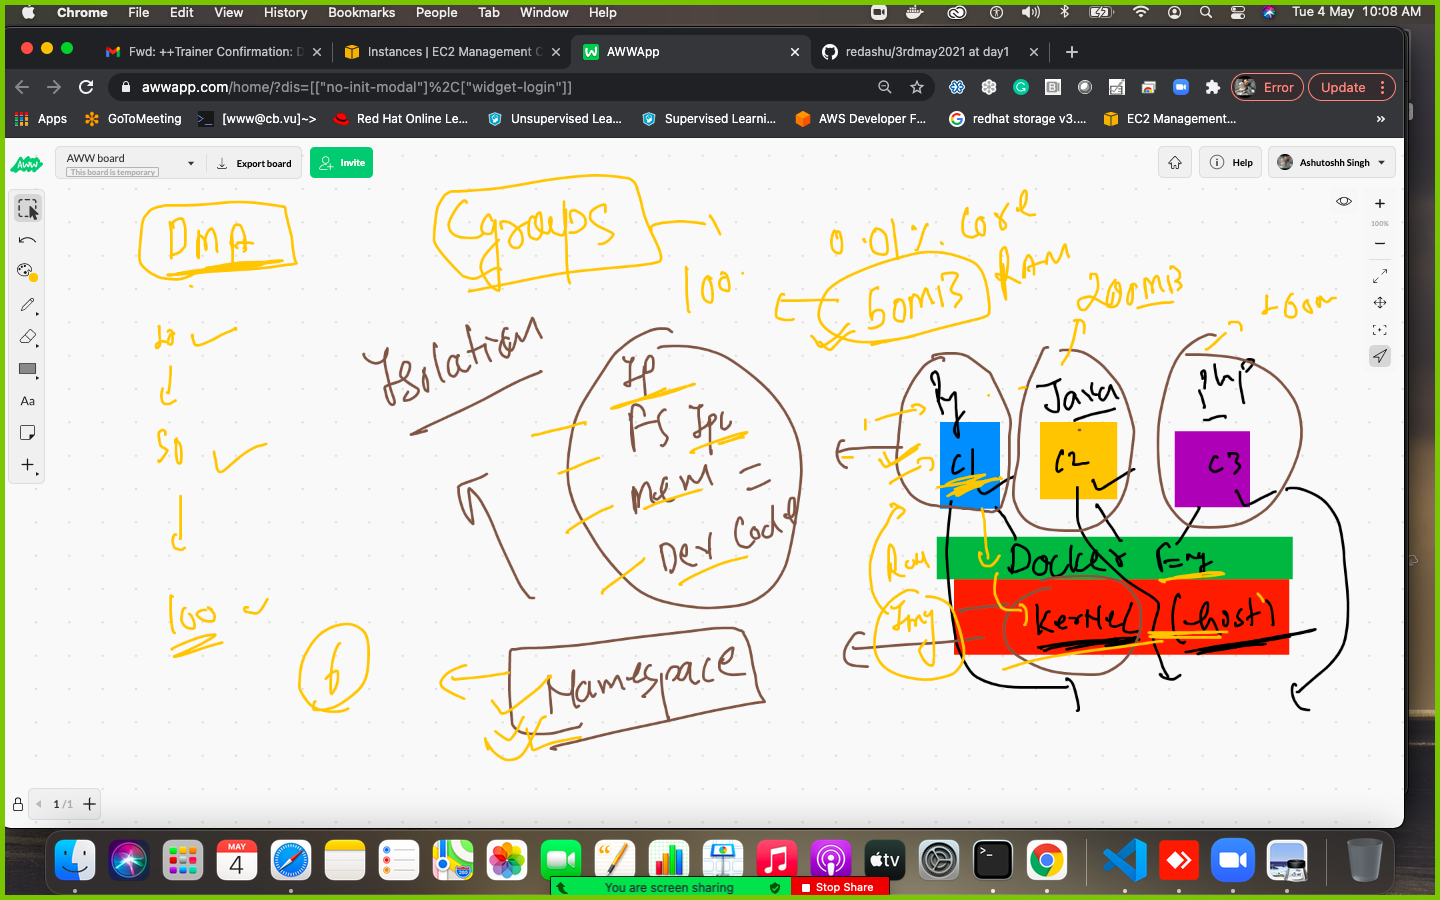 Chrome File Edit View History Bookmarks People Tab Window Help Tue 4 May 10:08 AM
Fwd: ++Trainer Confirmation: D Instances | EC2 Management C AWWApp redashu/3rdmay2021 at day1
awwapp.com/home/?dis=[["no-init-modal"]%2C["widget-login"]] Error Update
Apps GoToMeeting [www@cb.vu]~> Red Hat Online Le... Unsupervised Lea... Supervised Learni... AWS Developer F... redhat storage v3.... EC2 Management... »
AWW
AWW board
This board is temporary
Export board Invite Help Ashutoshh Singh
100%
Aa
DMA
Cgroups
0.01% Core
RAM
100
50MiB
200MiB
Isolation
IP
FS Ipc
mem
Dev Code
Py
Java
php
C1
C2
C3
50
100
6
Namespace
Docker Eng
Kernel (host)
1 /1
MAY
4
tv
You are screen sharing Stop Share